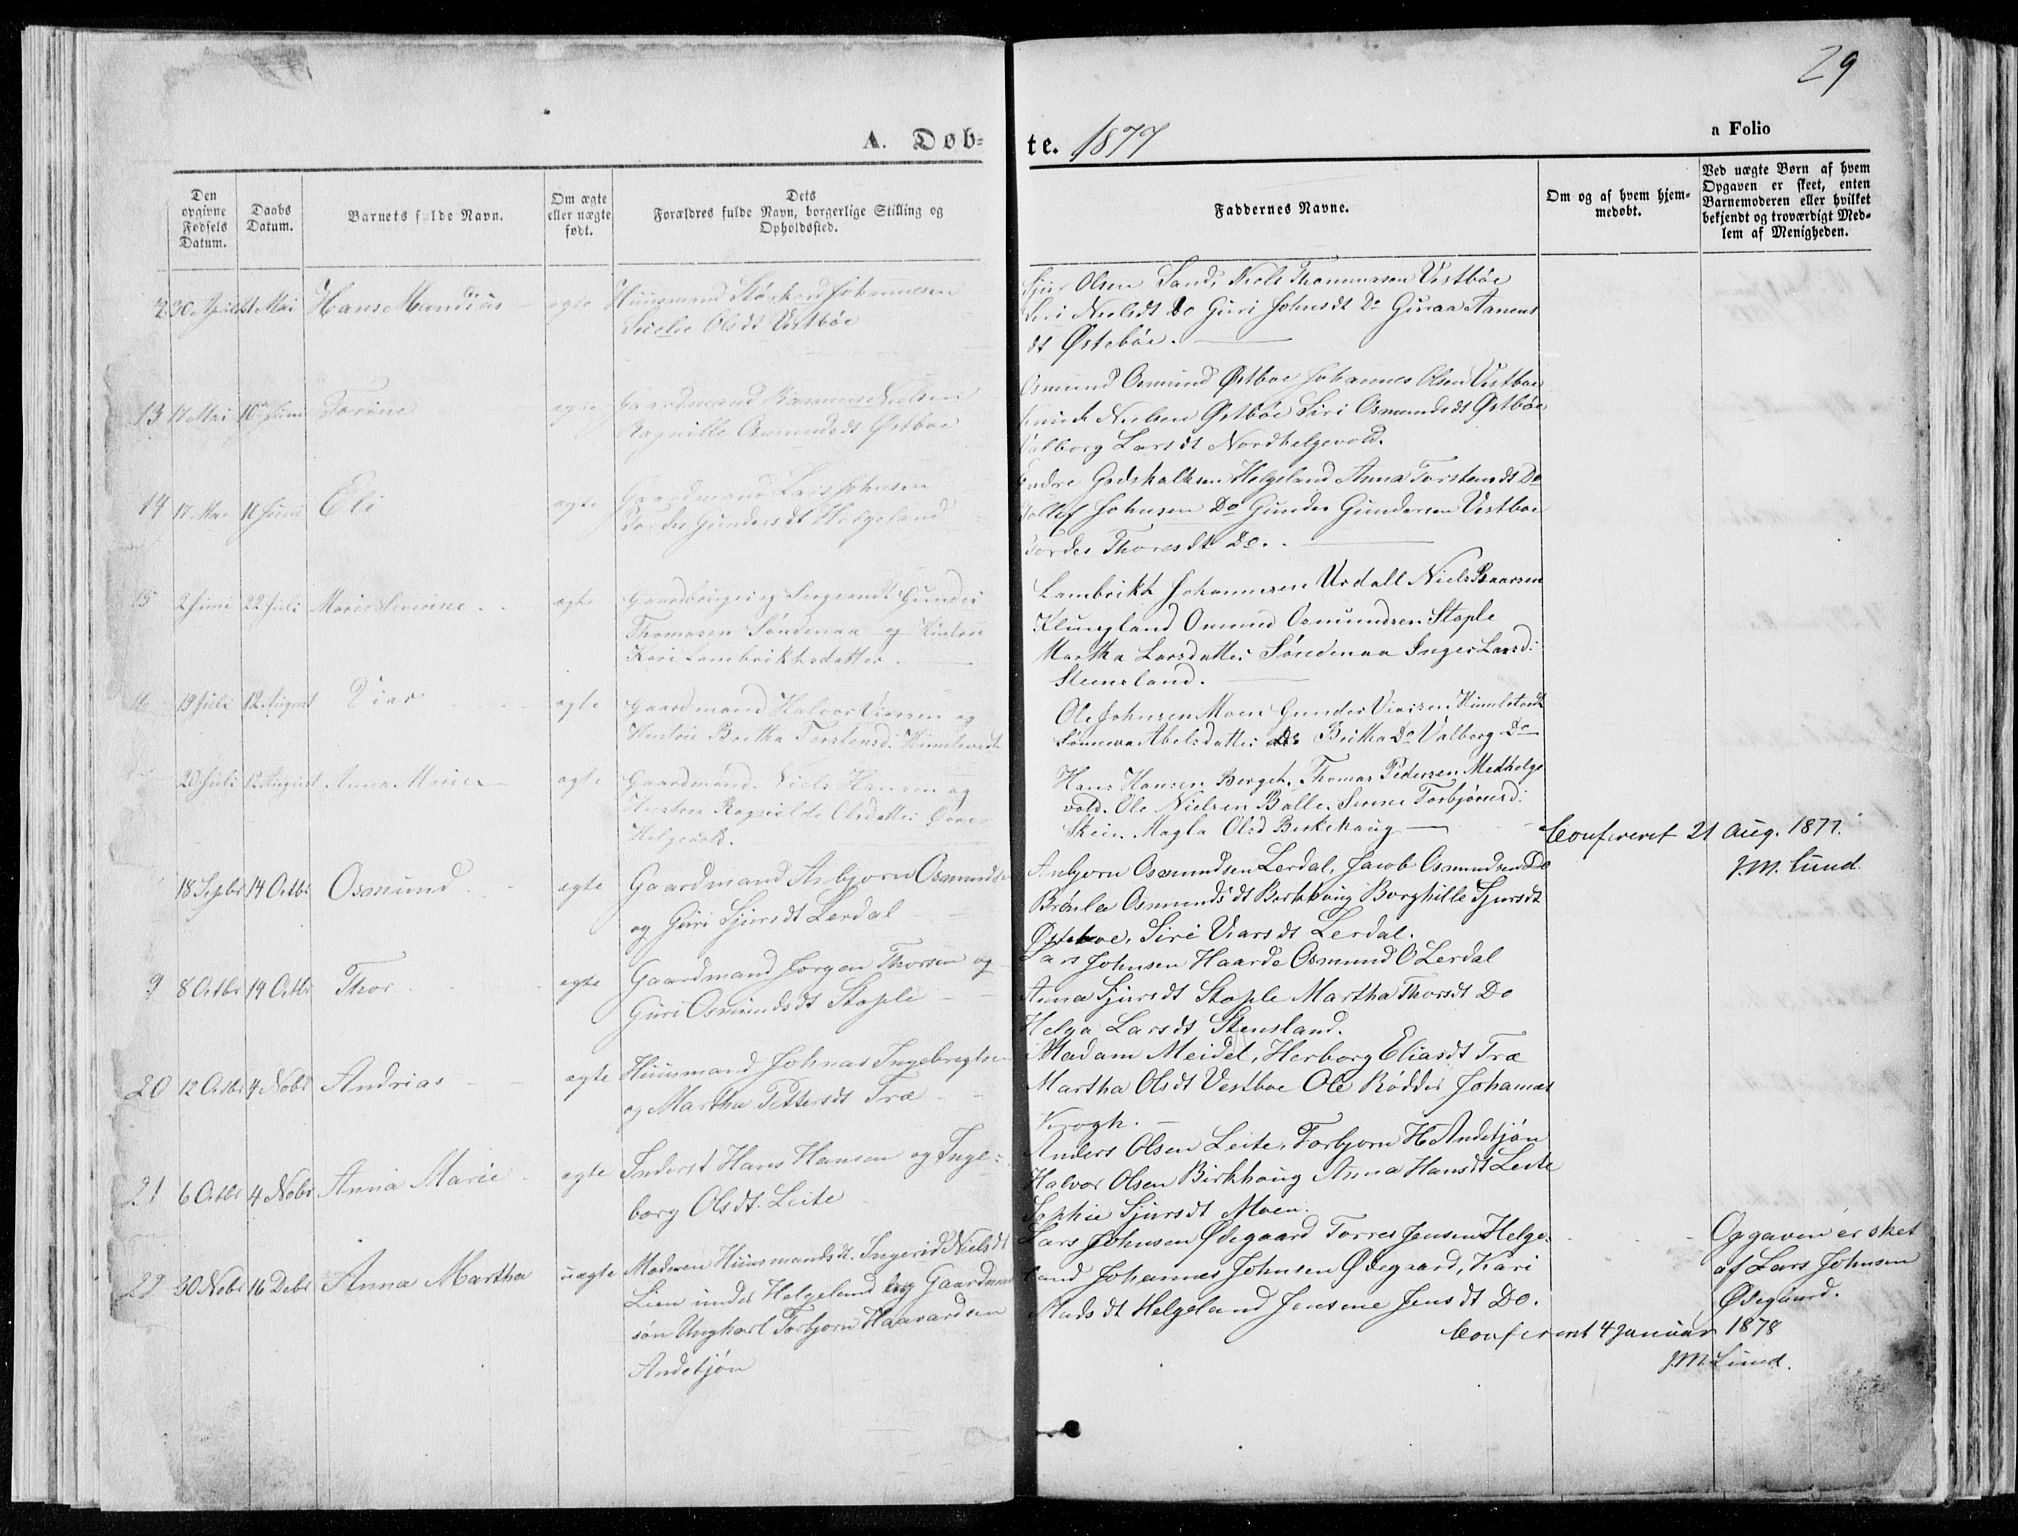 29
A. Døb-
te. 1877
a Folio
Den opgivne Fødsels Datum.
Daabs Datum.
Barnets fulde Navn.
Om ægte eller uægte født.
Dets Forældres fulde Navn, borgerlige Stilling og Opholdssted.
Faddernes Navne.
Om og af hvem hjemmedøbt.
Ved uægte Børn af hvem Opgaven er skeet, enten Barnemoderen eller hvilket bekjendt og troværdigt Medlem af Menigheden.
30 April Mai Hans Mandius ægte Huusmand Johannesen
Olsdt Vestbøe
Olsen Sand, Niels Thommasen Vestbøe
Siri Nielsdt Do Guri Johnsdt Do Aanens
dt Østebøe.
13 17 Mai 10 Juni Torine ægte Gaardmand Rasmus Nielsen
Ragnille Osmundsdt Østboe
Osmund Osmund Østboe Johannes Olsen Vestboe
Nielsen Østbøe Siri Osmundsdt Østbøe
Valborg Larsdt Nordhelgevold.
14 17 Mai Juni Eli ægte Gaardmand Lars Johnsen
Tordes Gundersdt Helgeland
Endre Godskalksen Helgeland Anna Torstensdt Do
Tollef Johnsen Do Gunder Gundersen Vestboe
Tordes Thoresdt Do.
15 2 Juni 22 Juli Marie Severine ægte Gaardbruger og Sergeandt Gunder
Thomasen Søndenaa og Hustru
Kari Lambrikhsdatter.
Lambrikt Johannesen Urdall Niels Baarsen
Klungland Omund Osmundsen Stople
Martha Larsdatter Søndenaa Inger Larsd.
Steinsland.
19 Juli 12 August Viar ægte Gaardmand Halvor Viarsen og
Hustru Britha Torstensd.
Ole Johnsen Moen Gunder Viarsen
Abelsdatter Do Britha Do Valborg Do
20 Juli 12 August Anna Marie ægte Gaardmand Niels Hansen og
Hustru Ragnilde Olsdatter
Helgevold.
Hans Hansen Berget, Thomas Pedersen Medhelge
vold. Ole Nielsen Balle. Torbjørnsd.
Skeie Magla Olsd Birkehaug
Confereret 21 Aug. 1877.
J.M. Lund.
18 Septbr 14 Octbr Osmund ægte Gaardmand Asbjorn Osmundsen
og Guri Sjursdt Lerdal
Anbjorn Osmundsen Lerdal, Jacob Osmundsen Do
Osmundsdt Birkhoug Borghille Sjursdt
Østeboe, Siri Viarsdt Lerdal.
9 8 Octbr 14 Octbr Thor ægte Gaardmand Jorgen Thorsen og
Guri Osmundsdt Stople
Lars Johnsen Haarde Osmund O Lerdal
Anna Sjursdt Stople Martha Thorsdt Do
Helga Larsdt Stensland.
20 12 Octbr 4 Nobr Andrias ægte Huusmand Johnas Ingebregtsen
og Martha Pettersdt Træ
Madam Meidel, Herborg Eliasdt Træ
Martha Olsdt Vestboe Ole Rødder Johannes
Krogh.
21 6 Octbr 4 Nobr Anna Marie ægte Inderst Hans Hansen og Inge-
borg Olsdt. Leite
Anders Olsen Leite, Torbjorn H Andetjøn
Halvor Olsen Birkhoug Anna Hansdt Leite
Sophie Sjursdt Moen.
22 30 Nobr 16 Debr Anna Martha uægte Moderen Huusmandsdt. Ingerid Nielsdt
Lien under Helgeland og Gaardman
søn Ungkarl Torbjorn Haavardsen
Andetjøn
Lars Johnsen Ødegaard Torres Jensen Helge-
land Johannes Johnsen Ødegaard, Kari
Madsdt Helgeland Jensine Jensdt Do.
Opgaven er sket
af Lars Johnsen
Ødegaard.
Confereret 4 Januar 1878
J.M. Lund.